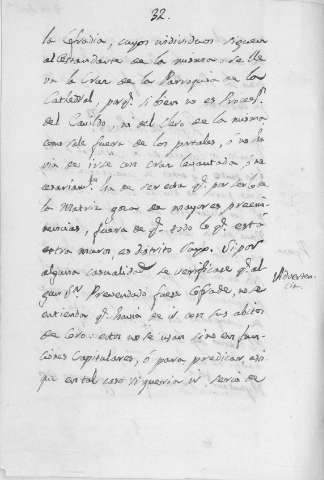 32.
la Cofradia, cuyos individuos siguen
al estandarte de la misma: se lle
va la Cruz de la Parroquia de la
Cathedral, porq.e si bien no es Proces.n
del Cavildo, ni del Clero de la misma
como sale fuera de los portales, y no ha
via de irse con Cruz levantada, y ne
cesariam.te ha de ser esta q.e por ser de
la Matriz goza de mayores preemi
nencias, fuera de q.e todo lo q.e está
extra muros, es distrito Si por
alguna casualidad se verificase q.e al
gun S.r Prevendado fuese Cofrade, no se
entienda q.e havia de ir con sus abitos
de Coro: estos no se usan sino en fun
ciones Capitulares, ó para predicar, asi
que en tal caso si queria ir seria de
Adverten
cia.